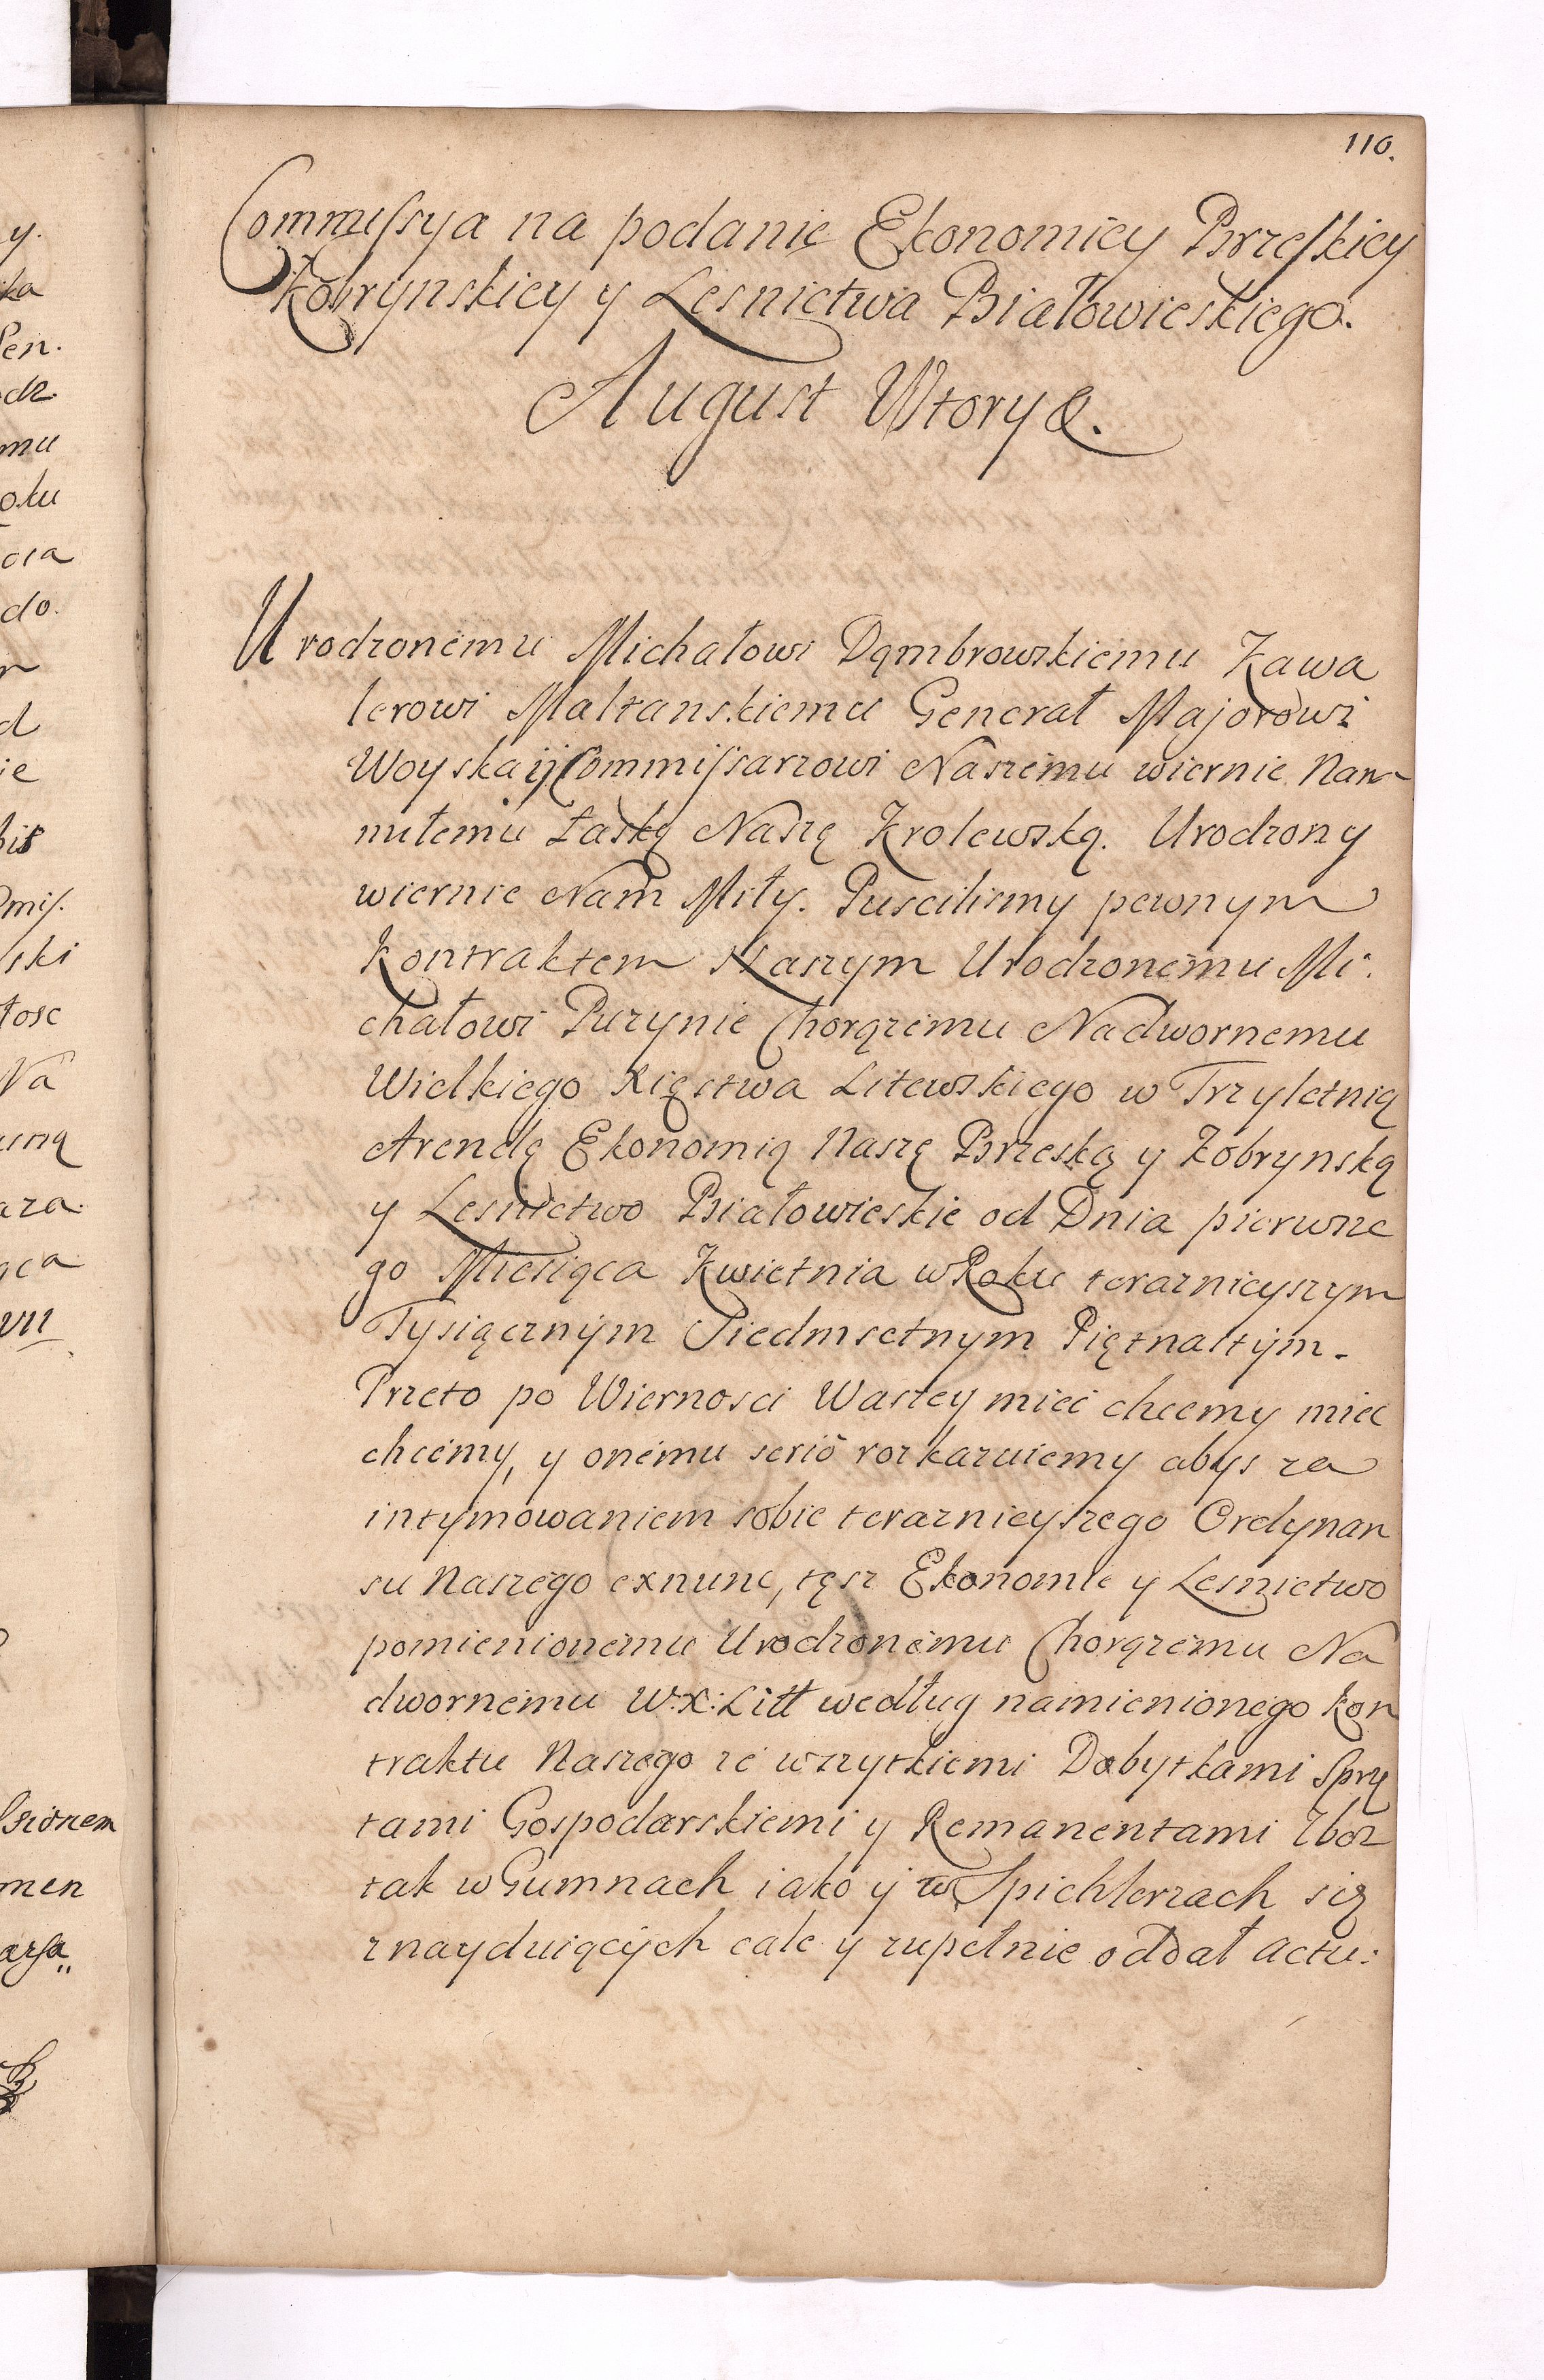 110.
Commissya na podanie Ekonomiey Brzeskiey
Kobrynskiey y Lesnictwa Białowieskiego.
August Wtory &.
Urodzonemu Michałowi Dąmbrowskiemu Kawa
lerowi Maltanskiemu Generał Majorowi
Woyska y Commissarzowi Naszemu wiernie Nam
miłemu Łaskę Naszę Krolewską. Urodzony
wiernie Nam Miły. Puscilismy pewnym
Kontraktem Naszym Urodzonemu Mi:
chałowi Puzynie Chorązemu Nadwornemu
Wielkiego Xięstwa Litewskiego w Trzyletnią
Arendę Ekonomią Naszę Brzeską y Kobrynską
y Lesnictwo Białowieskie od Dnia pierwsze
go Miesiąca Kwietnia w Roku teraznieyszym
Tysiącznym Siedmsetnym Piętnastym.
Przeto po Wiernosci Waszey miec chcemy miec
chcemy, y onemu serio rozkazuiemy abys za
intymowaniem sobie teraznieyszego Ordynan
su Naszego exnunc, tęsz Ekonomie y Lesnictwo
pomienionemu Urodzonemu Chorązemu Na
dwornemu W:X:Litt według namienionego Kon
traktu Naszego ze wszytkiemi Dobytkami Sprzę
tami Gospodarskiemi y Remanentami Zboz
tak w Gumnach iako y w Spichlerzach się
znayduiących cale y zupełnie oddał actu: